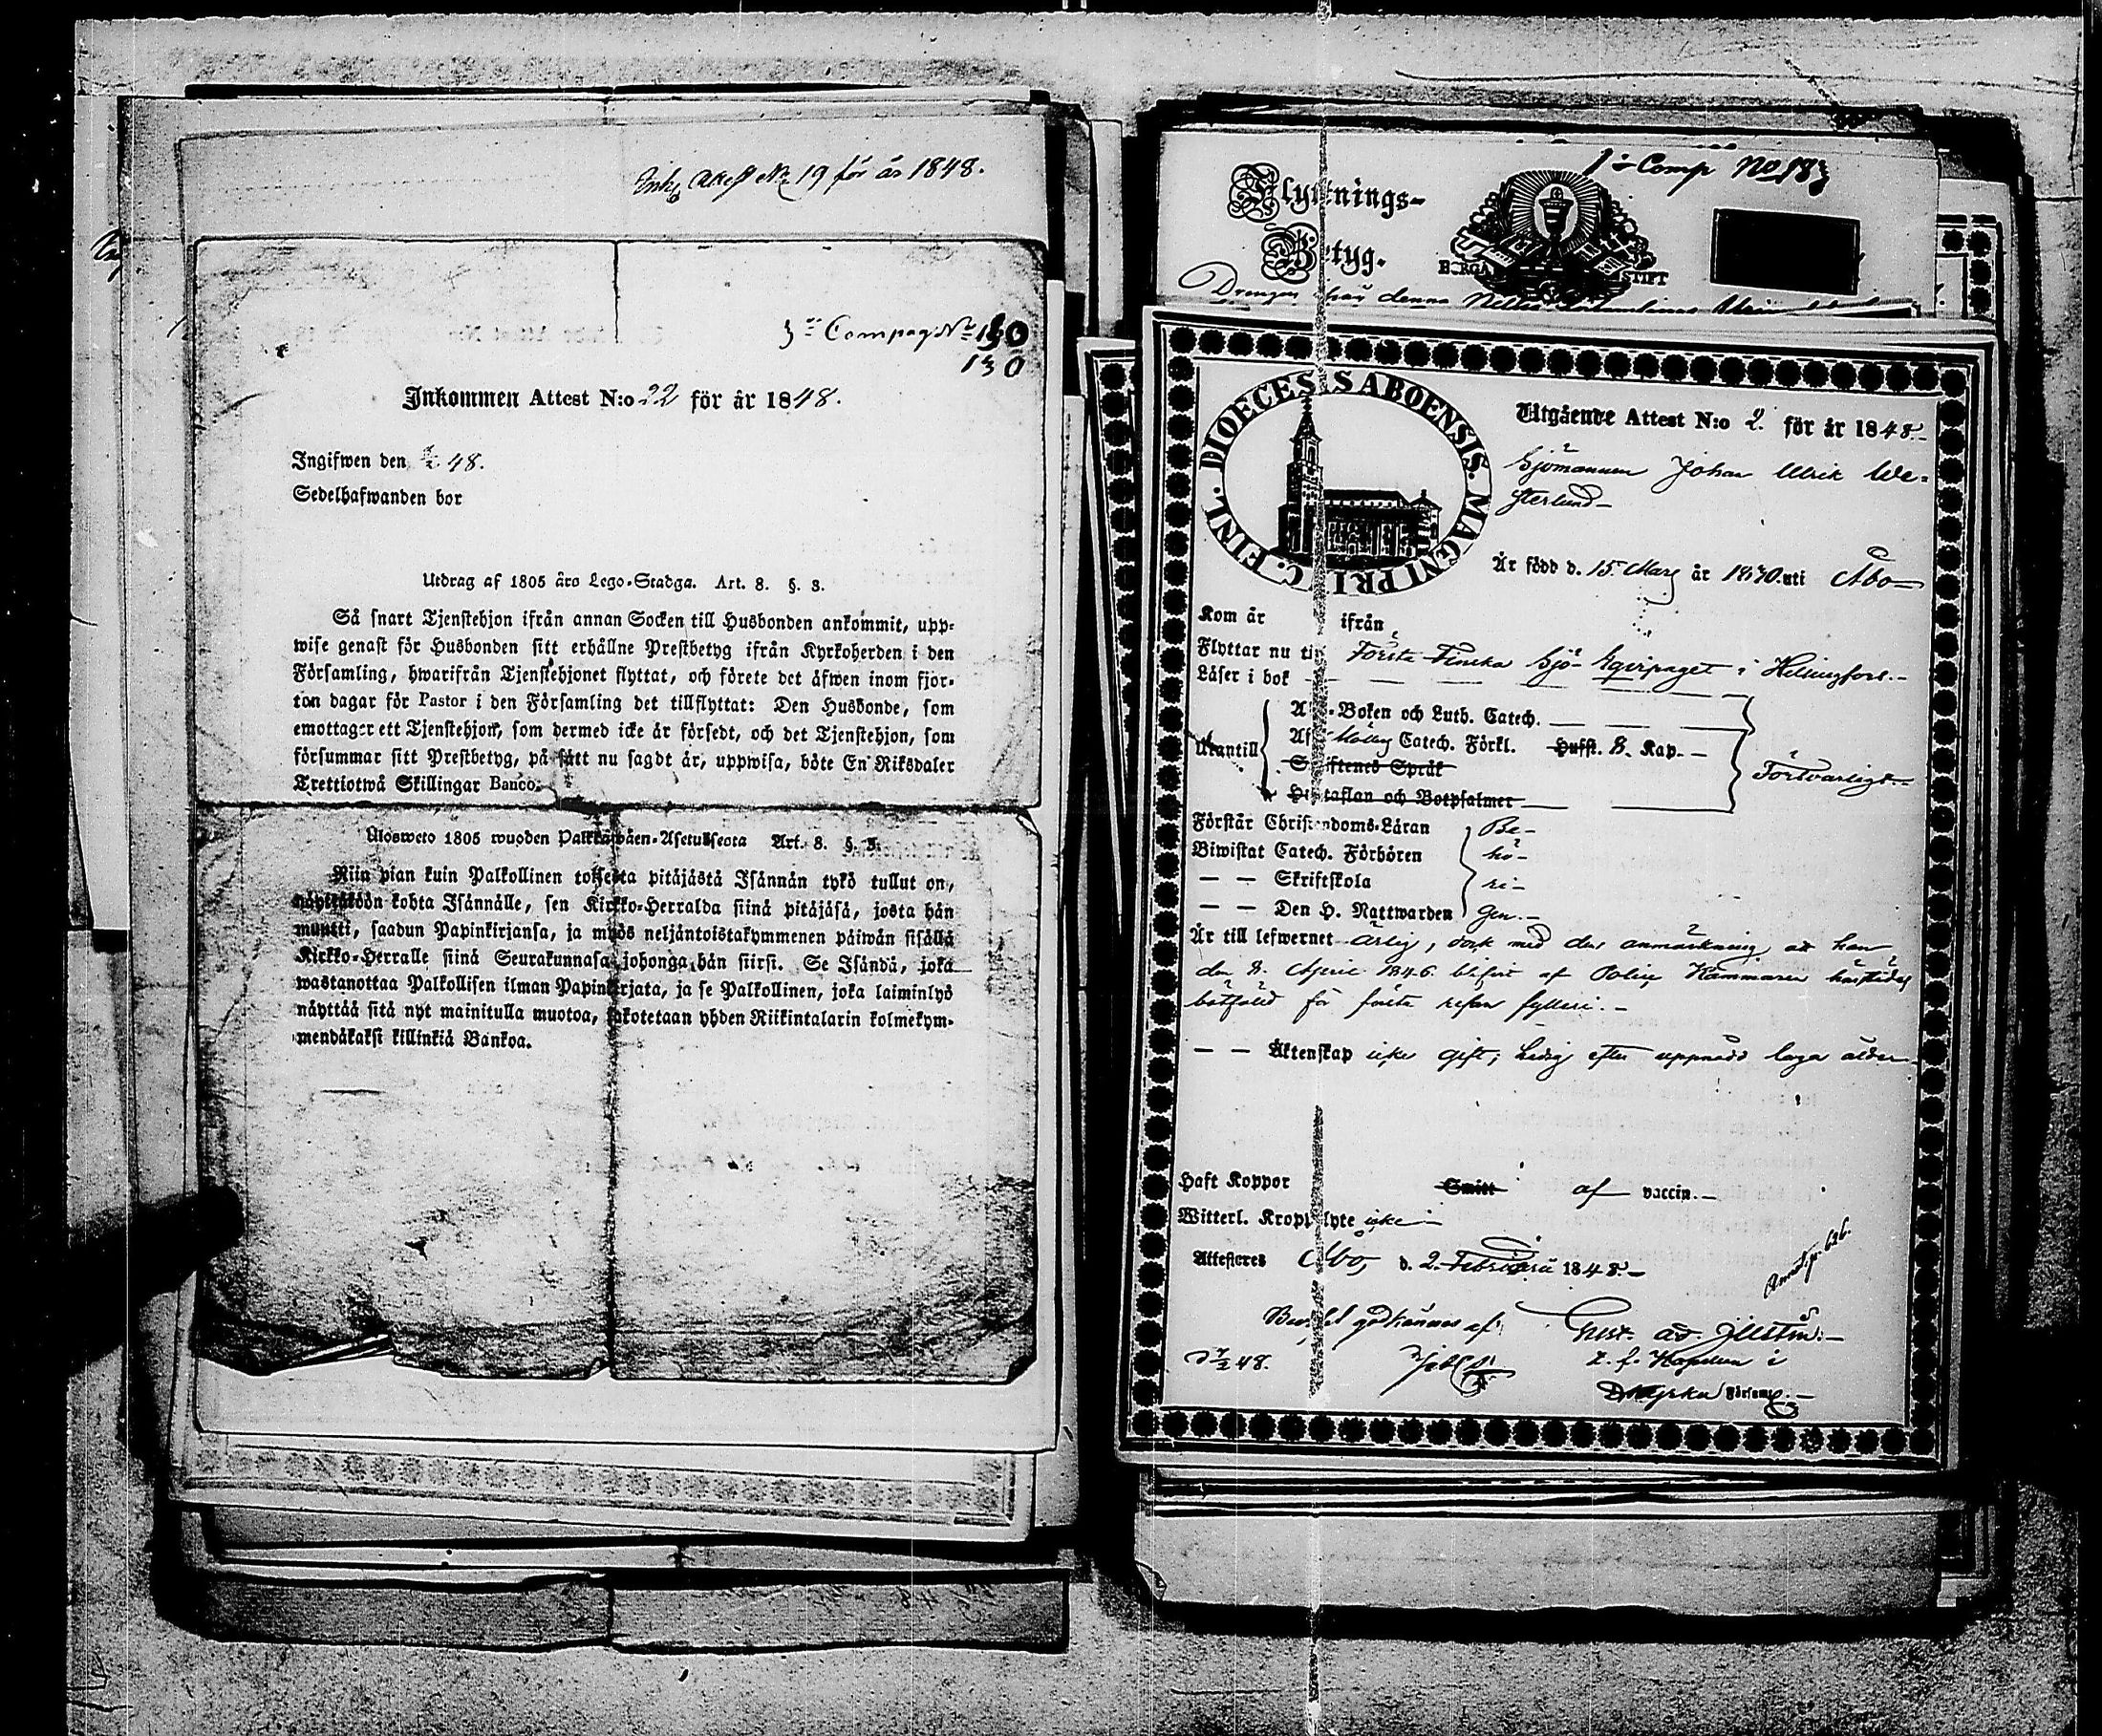 Ink. Attest No 19 för år 1848.
3:e Compag No 130
130
Inkommen Attest N:o 22 för år 1848.
Ingifwen den 7/2 48.
Sedelhafwanden bor
Utdrag af 1805 års Lego-Stadga. Art. 8. §. 3.
Så snart Tjenstehjon ifrån annan Socken till Husbonden ankommit, upp-
wise genast för Husbonden sitt erhållne Prestbetyg ifrån Kyrkoherden i den
Församling, hwarifrån Tjenstehjonet flyttat, och förete det äfwen inom fjor-
ton dagar för Pastor i den Församling det tillflyttat: Den Husbonde, som
emottager ett Tjenstehjon, som dermed icke är försedt, och det Tjenstehjon, som
försummar sitt Prestbetyg, på sätt nu sagdt är, uppwisa, böte En Riksdaler
Trettiotwå Skillingar Banco.
Ulosweto 1805 wuoden Palkkawäen-Asetuksesta Art. 8. §. 3.
Niin pian kuin Palkollinen toisesta pitäjästä Isännän tykö tullut on,
näyttäköön kohta Isännälle, sen Kirkko-Herralda siinä pitäjäsä, josta hän
muutti, saadun Papinkirjansa, ja myös neljäntoistakymmenen päiwän sisällä
Kirkko-Herralle siinä Seurakunnasa johonga hän siirsi. Se Isändä, joka
wastanottaa Palkollisen ilman Papinkirjata, ja se Palkollinen, joka laiminlyö
näyttää sitä nyt mainitulla muotoa, sakotetaan yhden Riikintalarin kolmekym-
mendäkaksi killinkiä Bankoa.
1:a Comp No 183
Flyttnings-
Betyg.
BORGÅ STIFT
Drengen från denna
DIOECESIS ABOENSIS. MAGNI PRINC. FINL.
Utgående Attest N:o 2. för år 1848.
Sjömannen Johan Ulrik We-
sterlund
Är född d. 15 Mars år 1830. uti Åbo
Kom år ifrån
Flyttar nu till Första Finska Sjö-Equipaget i Helsingfors.
Läser i bok
Utantill
A.B.C.-Boken och Luth. Catech.
Af Möllers Catech. Förkl. Hufst. 8. Kap.
Skriftenes Språk
Hustaflan och Botpsalmer
Försvarligt
Förstår Christendoms-Läran Be-
Biwistat Catech. Förhören hö-
— — Skriftskola ri-
— — Den H. Nattwarden gen.
Är till lefwernet ärlig, dock med den anmärkning att han
den 8. April 1846 blifvit af Police Kammaren härstädes
bötfälld för första resan fylleri.
— — Äktenskap icke gift; ledig efter uppnådd laga ålder
Haft Koppor Smitt af vaccin.
Witterl. Kroppslyte icke
Attesteres Åbo, d. 2. Februarii 1848.
Annot. p. 626.
Betyget godkännes af
d 7/2 48.
Gust. Ad.
t. f. Kapellan i
Domkyrko Församl.